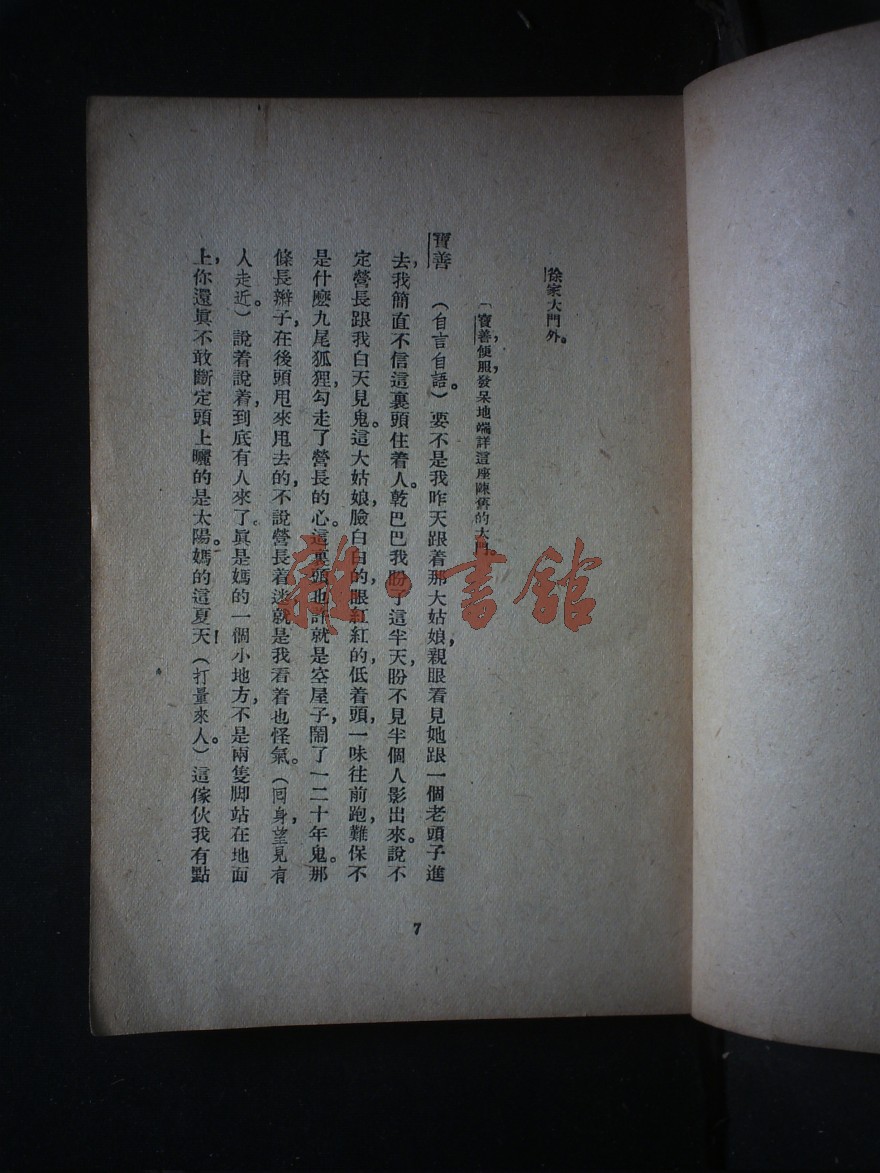 徐家大門外。
「寶善，便服，發呆地端詳這座陳舊的大門。
寶善　（自言自語。）要不是我昨天跟着那大姑娘，親眼看見她跟一個老頭子進
去，我簡直不信這裏頭住着人。乾巴巴我盼了這半天，盼不見半個人影出來。說不
定營長跟我白天見鬼。這大姑娘，臉白白的，眼紅紅的，低着頭，一味往前跑，難保不
是什麼九尾狐狸，勾走了營長的心。這裏頭也許就是空屋子，鬧了一二十年鬼。那
條長辮子在後頭甩來甩去的，不說營長着迷，就是我看着也怪氣。（回身，望見有
人走近。）說着說着，到底有人來了。眞是媽的一個小地方，不是兩隻脚站在地面
上，你還眞不敢斷定頭上曬的是太陽。媽的這夏天！（打量來人。）這傢伙我有點
7
雜·書館